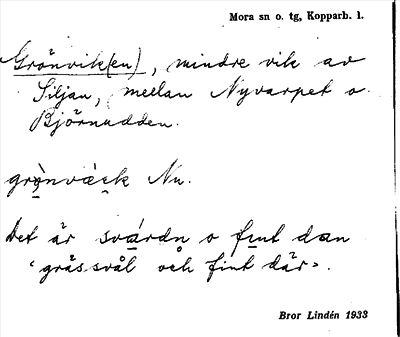 Mora sn o. tg, Kopparb. l.
Grönvik(en), mindre vik av
Siljan, mellan Nyvarpet o.
Björnudden.
grö̀nvæ̀ck Nu.
Det är svárdn o fint dan
‘gräs svål och fint där’.
Bror Lindén 1933